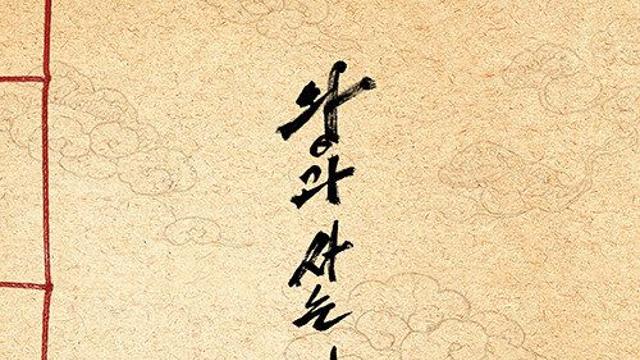 왕과 사는